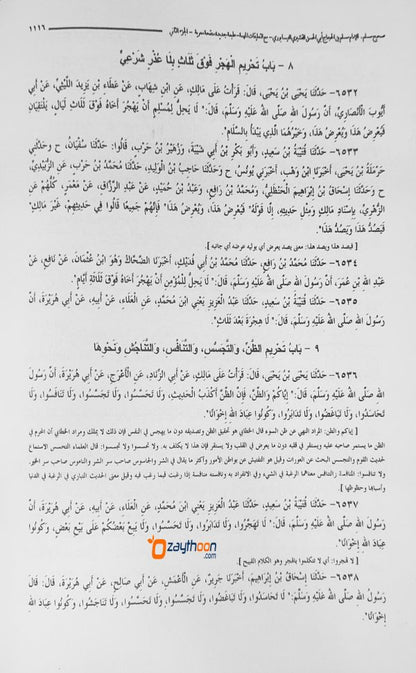 ١١١٦
٨ - بَابُ تَحْرِيمِ الْهَجْرِ فَوْقَ ثَلَاثٍ بِلَا عُذْرٍ شَرْعِيٍّ
٦٥٣٢- حَدَّثَنَا يَحْيَى بْنُ يَحْيَى، قَالَ: قَرَأْتُ عَلَى مَالِكٍ، عَنِ ابْنِ شِهَابٍ، عَنْ عَطَاءِ بْنِ يَزِيدَ اللَّيْثِيِّ، عَنْ أَبِي
أَيُّوبَ الْأَنْصَارِيِّ، أَنَّ رَسُولَ اللهِ صَلَّى اللهُ عَلَيْهِ وَسَلَّمَ، قَالَ: "لَا يَحِلُّ لِمُسْلِمٍ أَنْ يَهْجُرَ أَخَاهُ فَوْقَ ثَلَاثِ لَيَالٍ، يَلْتَقِيَانِ
فَيُعْرِضُ هَذَا، وَيُعْرِضُ هَذَا، وَخَيْرُهُمَا الَّذِي يَبْدَأُ بِالسَّلَامِ".
٦٥٣٣- حَدَّثَنَا قُتَيْبَةُ بْنُ سَعِيدٍ، وَأَبُو بَكْرِ بْنُ أَبِي شَيْبَةَ، وَزُهَيْرُ بْنُ حَرْبٍ، قَالُوا: حَدَّثَنَا سُفْيَانُ، ح وحَدَّثَنِي
حَرْمَلَةُ بْنُ يَحْيَى، أَخْبَرَنَا ابْنُ وَهْبٍ، أَخْبَرَنِي يُونُسُ، ح وحَدَّثَنَا حَاجِبُ بْنُ الْوَلِيدِ، حَدَّثَنَا مُحَمَّدُ بْنُ حَرْبٍ، عَنِ الزُّبَيْدِيِّ،
ح وحَدَّثَنَا إِسْحَاقُ بْنُ إِبْرَاهِيمَ الْحَنْظَلِيُّ، وَمُحَمَّدُ بْنُ رَافِعٍ، وَعَبْدُ بْنُ حُمَيْدٍ، عَنْ عَبْدِ الرَّزَّاقِ، عَنْ مَعْمَرٍ، كُلُّهُمْ عَنِ
الزُّهْرِيِّ، بِإِسْنَادِ مَالِكٍ وَمِثْلِ حَدِيثِهِ، إِلَّا قَوْلَهُ: "فَيُعْرِضُ هَذَا، وَيُعْرِضُ هَذَا" فَإِنَّهُمْ جَمِيعًا قَالُوا فِي حَدِيثِهِمْ، غَيْرَ مَالِكٍ"
فَيَصُدُّ هَذَا وَيَصُدُّ هَذَا".
[ فيصد هذا ويصد هذا: معنى يصد يعرض أي يوليه عرضه أي جانبه ].
٦٥٣٤- حَدَّثَنَا مُحَمَّدُ بْنُ رَافِعٍ، حَدَّثَنَا مُحَمَّدُ بْنُ أَبِي فُدَيْكٍ، أَخْبَرَنَا الضَّحَّاكُ وَهُوَ ابْنُ عُثْمَانَ، عَنْ نَافِعٍ، عَنْ
عَبْدِ اللهِ بْنِ عُمَرَ، أَنَّ رَسُولَ اللهِ صَلَّى اللهُ عَلَيْهِ وَسَلَّمَ، قَالَ: "لَا يَحِلُّ لِلْمُؤْمِنِ أَنْ يَهْجُرَ أَخَاهُ فَوْقَ ثَلَاثَةِ أَيَّامٍ".
٦٥٣٥- حَدَّثَنَا قُتَيْبَةُ بْنُ سَعِيدٍ، حَدَّثَنَا عَبْدُ الْعَزِيزِ يَعْنِي ابْنَ مُحَمَّدٍ، عَنِ الْعَلَاءِ، عَنْ أَبِيهِ، عَنْ أَبِي هُرَيْرَةَ، أَنَّ
رَسُولَ اللهِ صَلَّى اللهُ عَلَيْهِ وَسَلَّمَ، قَالَ: "لَا هِجْرَةَ بَعْدَ ثَلَاثٍ".
٩ - بَابُ تَحْرِيمِ الظَّنِّ، وَالتَّجَسُّسِ، وَالتَّنَافُسِ، وَالتَّنَاجُشِ وَنَحْوِهَا
٦٥٣٦- حَدَّثَنَا يَحْيَى بْنُ يَحْيَى، قَالَ: قَرَأْتُ عَلَى مَالِكٍ، عَنْ أَبِي الزِّنَادِ، عَنِ الْأَعْرَجِ، عَنْ أَبِي هُرَيْرَةَ، أَنَّ رَسُولَ
اللهِ صَلَّى اللهُ عَلَيْهِ وَسَلَّمَ، قَالَ: "إِيَّاكُمْ وَالظَّنَّ، فَإِنَّ الظَّنَّ أَكْذَبُ الْحَدِيثِ، وَلَا تَحَسَّسُوا، وَلَا تَجَسَّسُوا، وَلَا تَنَافَسُوا، وَلَا
تَحَاسَدُوا، وَلَا تَبَاغَضُوا، وَلَا تَدَابَرُوا، وَكُونُوا عِبَادَ اللهِ إِخْوَانًا".
[ إياكم والظن: المراد النهي عن ظن السوء قال الخطابي هو تحقيق الظن وتصديقه دون ما يهجس في النفس فإن ذلك لا يملك ومراد الخطابي أن المحرم في
الظن ما يستمر صاحبه عليه ويستقر في قلبه دون ما يعرض في القلب ولا يستقر فإن هذا لا يكلف به. ولا تحسسوا ولا تجسسوا: قال العلماء التحسس الاستماع
لحديث القوم والتجسس البحث عن العورات وقيل هو التفتيش عن بواطن الأمور وأكثر ما يقال في الشر والجاسوس صاحب سر الشر والناموس صاحب سر الخير.
ولا تنافسوا: المنافسة والتنافس معناهما الرغبة في الشيء وفي الانفراد به ونافسته منافسة إذا رغبت فيما رغب فيه وقيل معنى الحديث التباري في الرغبة في الدنيا
وأسبابها وحظوظها ].
٦٥٣٧- حَدَّثَنَا قُتَيْبَةُ بْنُ سَعِيدٍ، حَدَّثَنَا عَبْدُ الْعَزِيزِ يَعْنِي ابْنَ مُحَمَّدٍ، عَنِ الْعَلَاءِ، عَنْ أَبِيهِ، عَنْ أَبِي هُرَيْرَةَ، أَنَّ
رَسُولَ اللهِ صَلَّى اللهُ عَلَيْهِ وَسَلَّمَ، قَالَ: "لَا تَهَجَّرُوا، وَلَا تَدَابَرُوا، وَلَا تَحَسَّسُوا، وَلَا يَبِعْ بَعْضُكُمْ عَلَى بَيْعِ بَعْضٍ، وَكُونُوا
عِبَادَ اللهِ إِخْوَانًا".
zaythoon
.com
[ لا تهجروا: أي لا تتكلموا بالهجر وهو الكلام القبيح ].
٦٥٣٨- حَدَّثَنَا إِسْحَاقُ بْنُ إِبْرَاهِيمَ، أَخْبَرَنَا جَرِيرٌ، عَنِ الْأَعْمَشِ، عَنْ أَبِي صَالِحٍ، عَنْ أَبِي هُرَيْرَةَ، قَالَ: قَالَ
رَسُولُ اللهِ صَلَّى اللهُ عَلَيْهِ وَسَلَّمَ: "لَا تَحَاسَدُوا، وَلَا تَبَاغَضُوا، وَلَا تَجَسَّسُوا، وَلَا تَحَسَّسُوا، وَلَا تَنَاجَشُوا، وَكُونُوا عِبَادَ
اللهِ إِخْوَانًا".